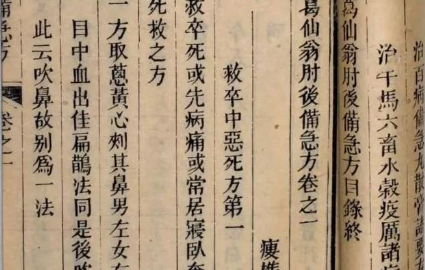 治百病備急丸散膏諸要方
治牛馬六畜水穀疫厲諸病
葛仙翁肘後備急方目錄終
葛仙翁肘後備急方卷之一
瘦樵
救卒中惡死方第一
救卒死或先病痛或常居寢臥奄
死救之方
一方取葱黃心刾其鼻男左女右
目中血出佳扁鵲法同是後
此云吹鼻故別為一法
備急方
卷之一